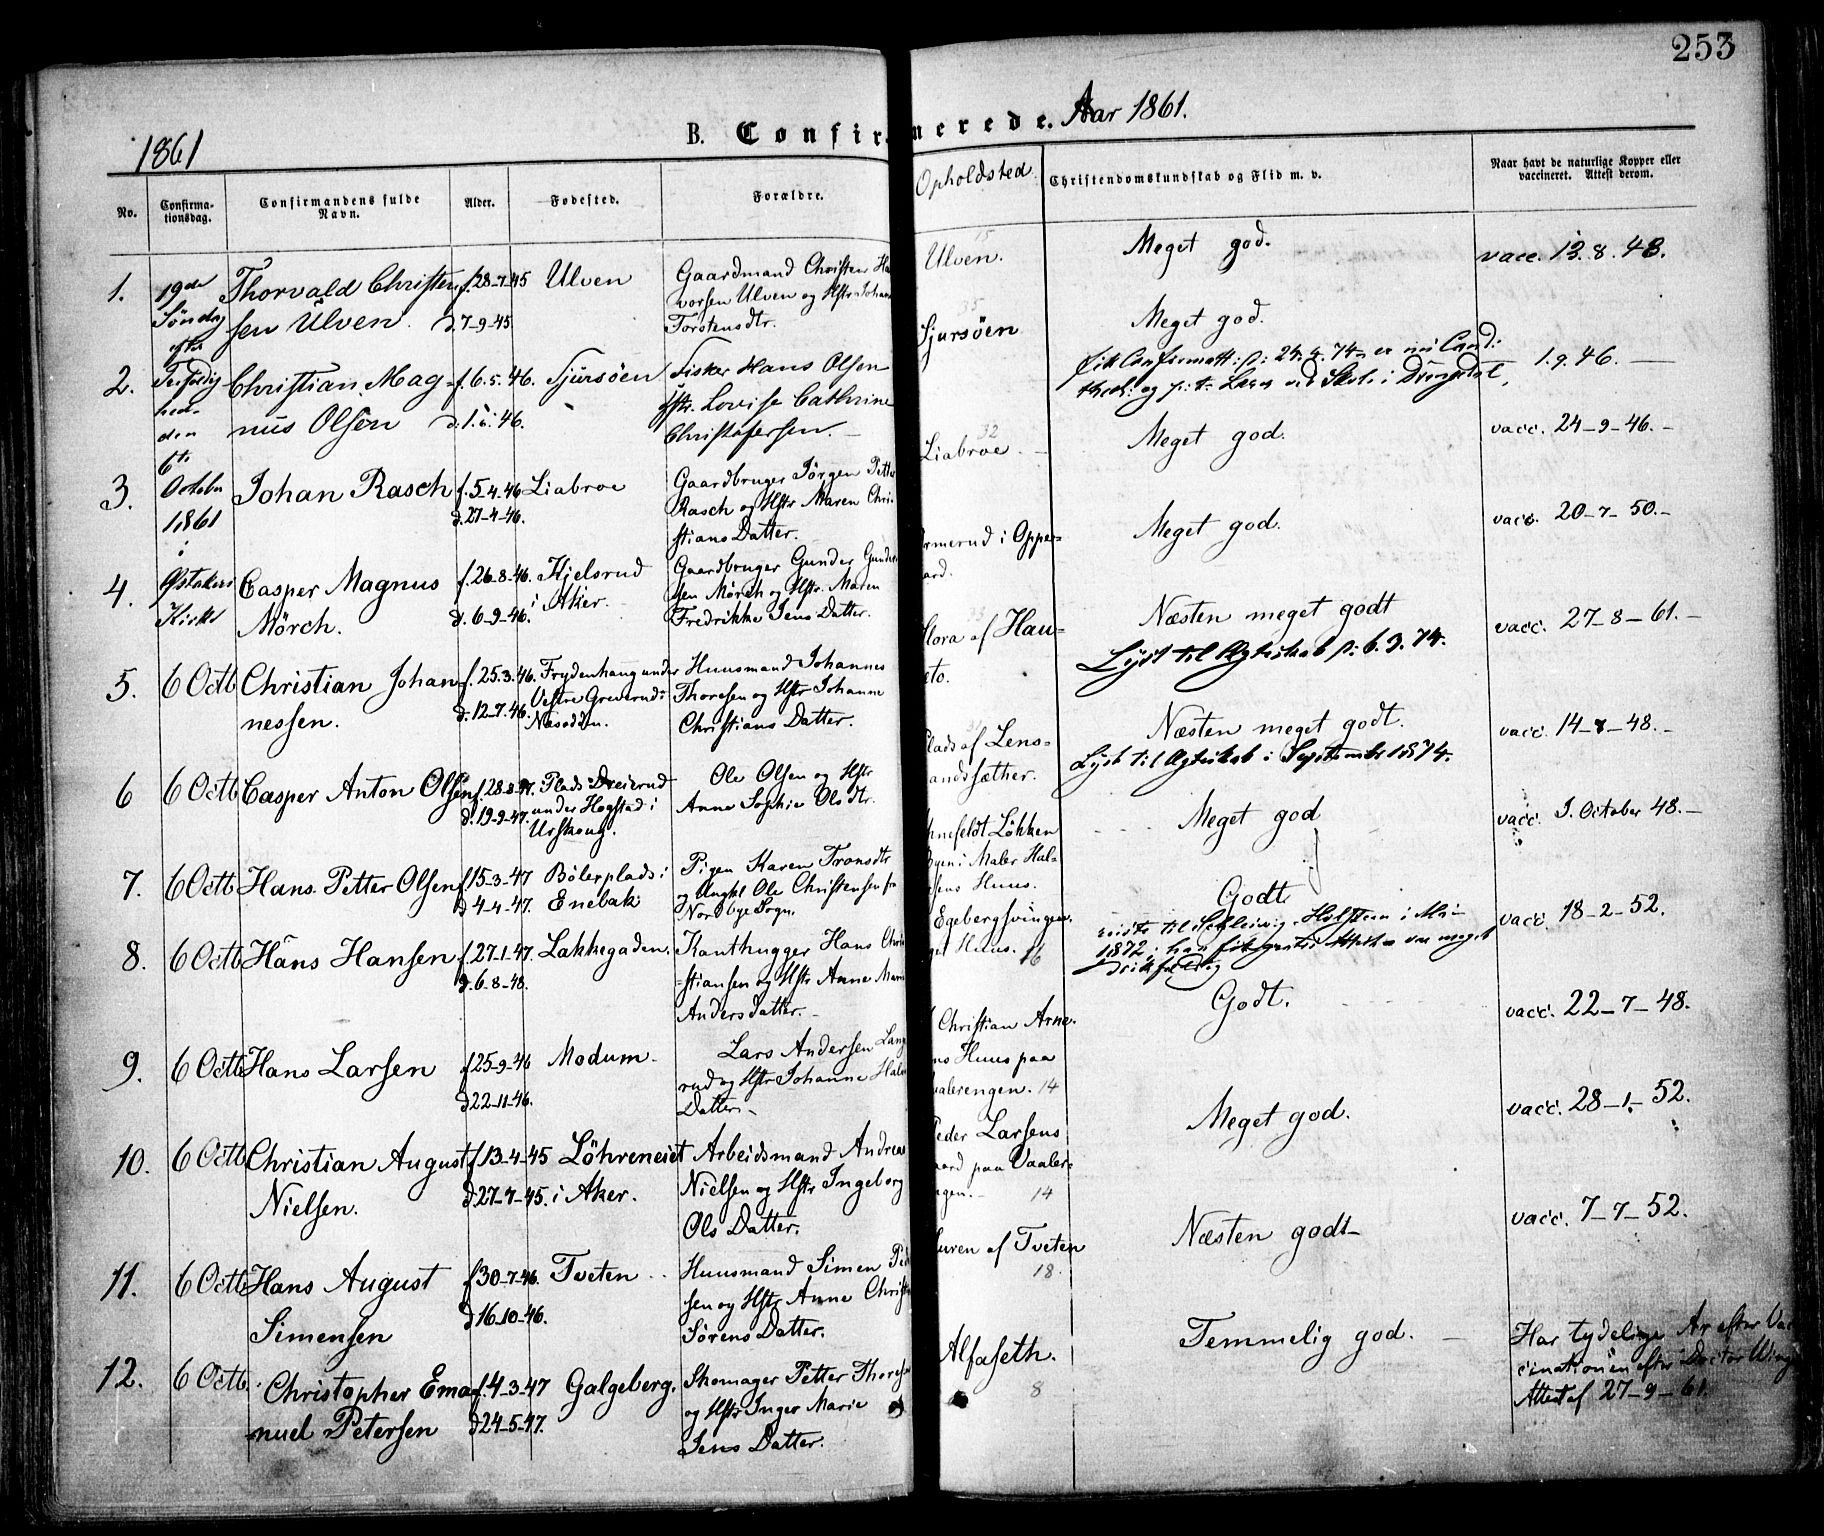 253
1861
B. Confirmerede. Aar 1861.
No.
Confirma-
tionsdag.
Confirmandens fulde
Navn.
Alder.
Fødested.
Forældre.
Opholdsted
Christendomskundskab og Flid m. v.
Naar havt de naturlige Kopper eller
vaccineret. Attest derom.
19de
Søndag
efter
den
6te
October
1861
i
Østakers
Kirke
1.
Thorvald Christen
sen Ulven.
f. 28-7-45
d. 7-9-45
Ulven
Gaardmand Christen
vorsen Ulven og Hstr. Johan
Torstensdtr.
15
Ulven.
Meget god.
vacc. 13. 8. 48.
2.
Christian Mag-
nus Olsen
f. 6. 5. 46.
d. 1. 6. 46.
Sjursøen
Fisker Hans Olsen
Hstr. Lovise Cathrine
Christofersen.
35
Sjursøen
Meget god.
1. 9. 46.
3.
Johan Rasch
f. 5. 4. 46
d. 27-4-46.
Liabroe
Gaardbruger Jørgen Petter
Rasch og Hstr Maren Chri
stians Datter.
32
Liabroe
Meget god.
vacc. 24-9-46.-
4.
Casper Magnus
Mörch.
f. 26-8-46.
d. 6-9-46.
Kjelsrud
i Aker.
Gaardbruger Gunder Gunder
sen Mørch og Hstr. Maren
Fredrikke Jens Datter.
ormerud i Opper
ard.
Meget god.
vacc. 20-7-50.-
5.
6 Octb
Christian Johan
nessen.
f. 25. 3. 46.
d. 12-7-46.
Frydenhaug under
Vestre Greverud i
Næsodden.
Huusmand Johannes
Thoresen og Hstr Johanne
Christians Datter.
33
Flora af Hau-
keto.
Næsten meget godt
Lyst til Ægteskab p: 6. 3. 74.
vacc. 27-8-61.-
6
6 Octb
Casper Anton Olsen
f. 28-8-47.
d. 19-9-47.
Plads Dreierud
under Hogstad i
Urskoug.
Ole Olsen og Hstr
Anne Sophie Olsdtr.
Plads af Lens-
andssæther.
Næsten meget godt.
Lyst til Ægteskab i September 1874.
vacc. 14-8-48.-
7.
6 Octb
Hans Petter Olsen
f 15-3-47
d 4-4-47.
Bölerplads i
Enebak
Pigen Karen Tronsdtr
og Ungkl Ole Christensen fra
Nordbye Sogn.
Løkken
Byen i Maler Hal-
Huus.
Meget god
vacc. 5. October 48.-
8.
6 Octb
Hans Hansen
f. 27-1-47.
d. 6-8-48.
Lakkegaden.
Kanthugger Hans Chri
stiansen og Hstr Anne Mari
Anders Datter.-
Egebergsvingen
Huus. 16
Godt
reiste til Schleswig-Holsteen i Mai
1872;
vacc. 18-2-52.
9.
6 Octb
Hans Larsen
f 25-9-46
d 22-11-46.
Modum.
Lars Andersen Lang
rud og Hstr Johanne Hal
Datter.-
Christian Arne-
ns Huus paa
Vaalerengen. 14
Godt.
vacc. 22-7-48.
10.
6 Octb
Christian August
Nielsen.
f 13-4-45
d 27-7-45.
Löhreneiet
i Aker.
Arbeidsmand Andreas
Nielsen og Hstr Ingeborg
Ols Datter.
Peder Larsens
aard paa Vaaler-
engen.- 14
Meget god.
vacc. 28-1-52.
11.
6 Octb
Hans August
Simensen
f 30-7-46.
d 16-10-46.
Tveten
Huusmand Simen Ped
sen og Hstr Anne Christ
Sörens Datter.
uren af Tveten
18.
Næsten godt
vacc. 7-7-52.
12.
6 Octb.
Christopher Ema-
nuel Petersen
f. 4-3-47
d 24-5-47.
Galgeberg.
Skomager Petter Thores
og Hstr Inger Marie
Jens Datter.
Alfaseth.
8
Temmelig god.
Har tydelige Ar efter Vac
cinationen efter Doctor Wing
Attest af 27-9-61.